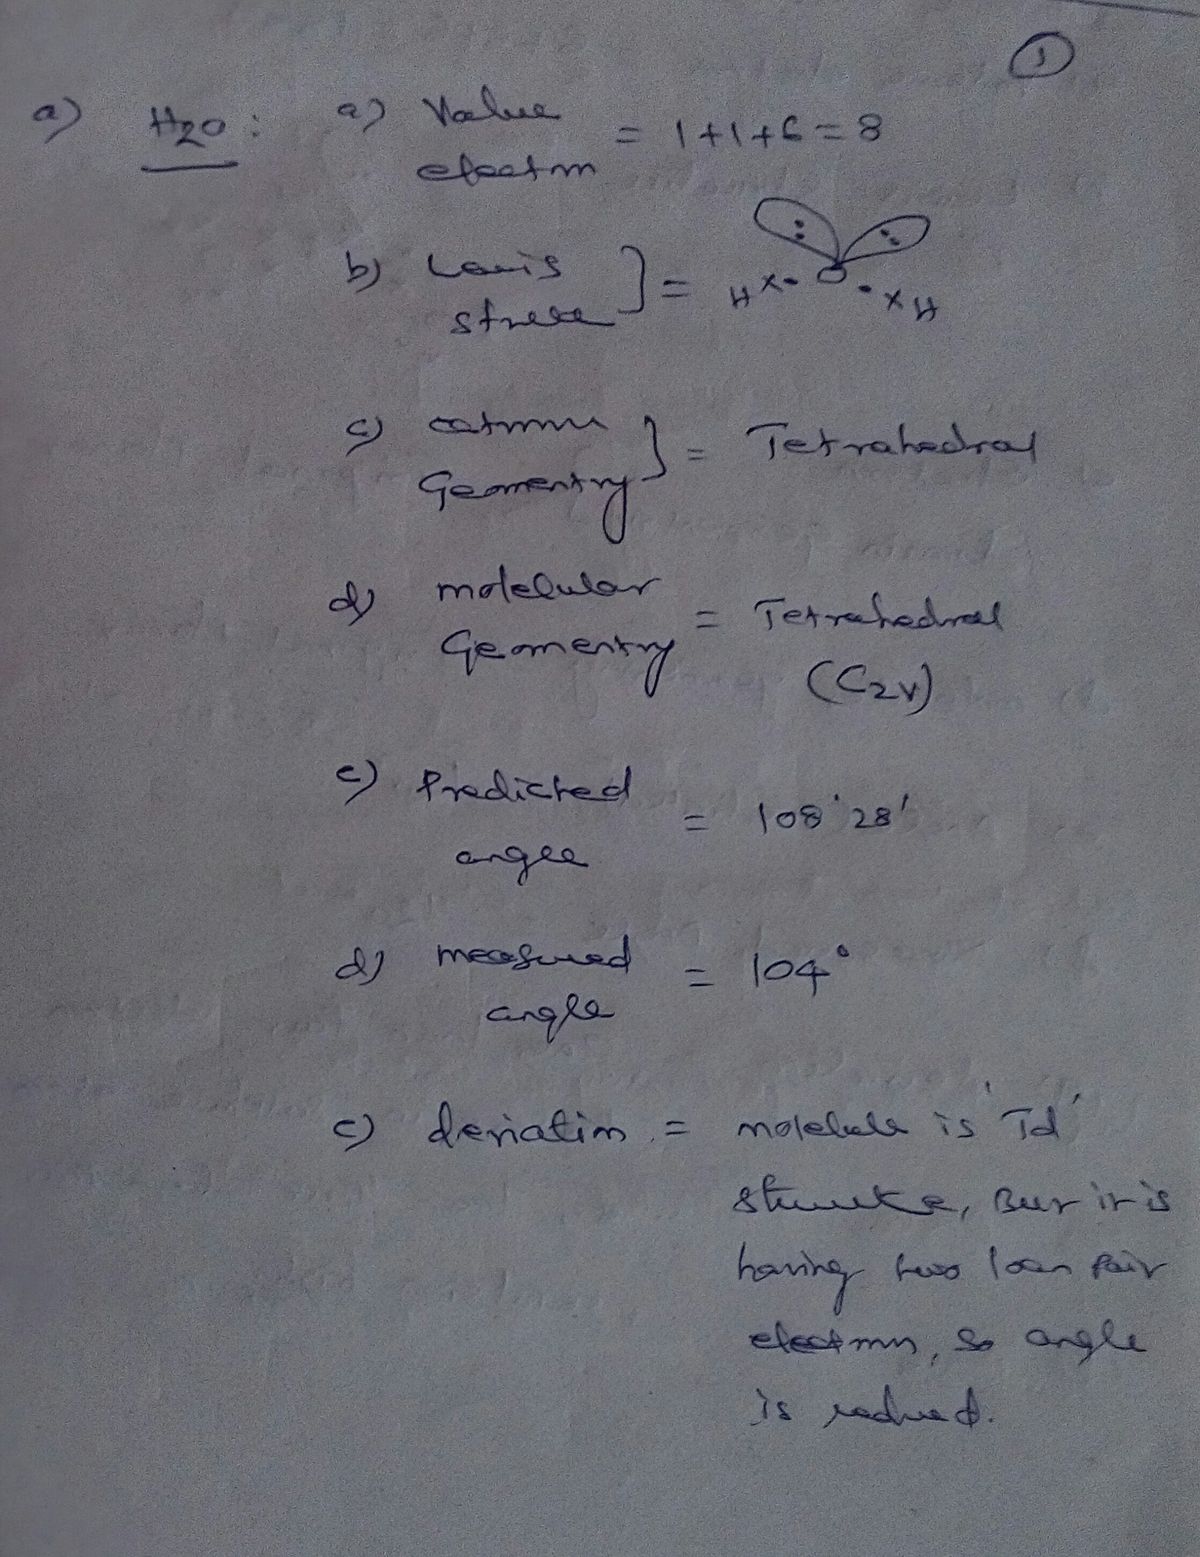 1
a) H2O : a) Value
electrn = 1+1+6=8
b) Lewis
= H X• O •X H
c)
Geomentry } = Tetrahedral
d) molelular
Geomentry = Tetrahedral
(C2v)
e) Predicted
angle = 108° 28'
d) measured
angle = 104°
e) deviation = molelule is 'Td'
But it is
having two loan pair
electrn, so angle
is redued.